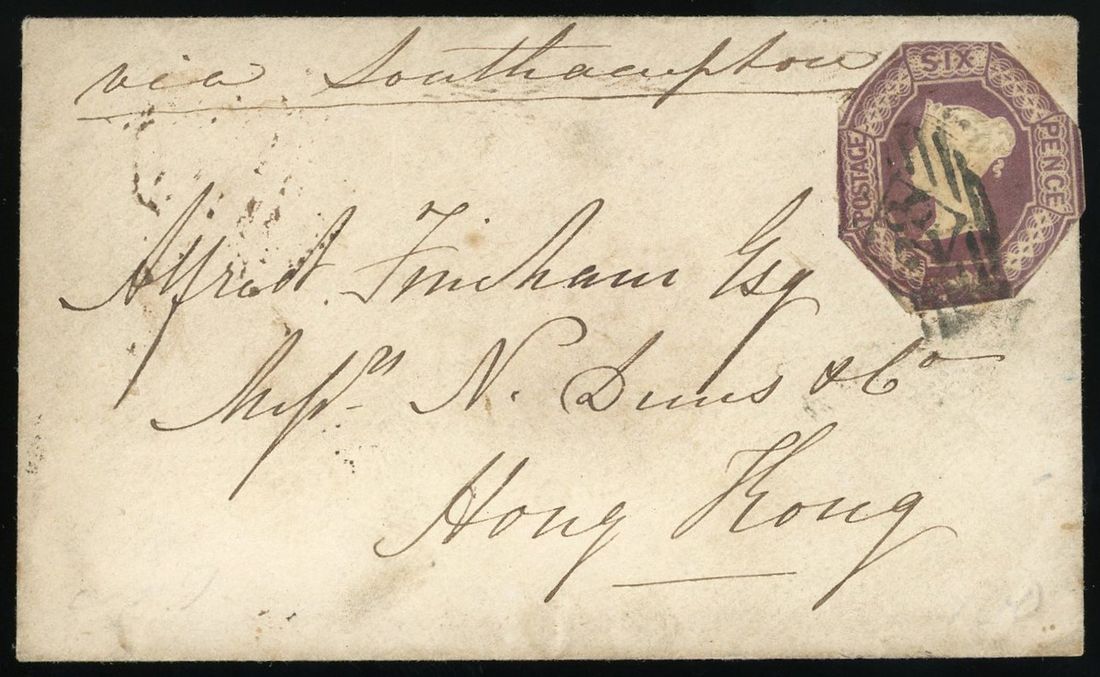 via Southampton
SIX
PENCE
POSTAGE
Alfred Fincham Esq
Messrs N. Duus & Co
Hong Kong